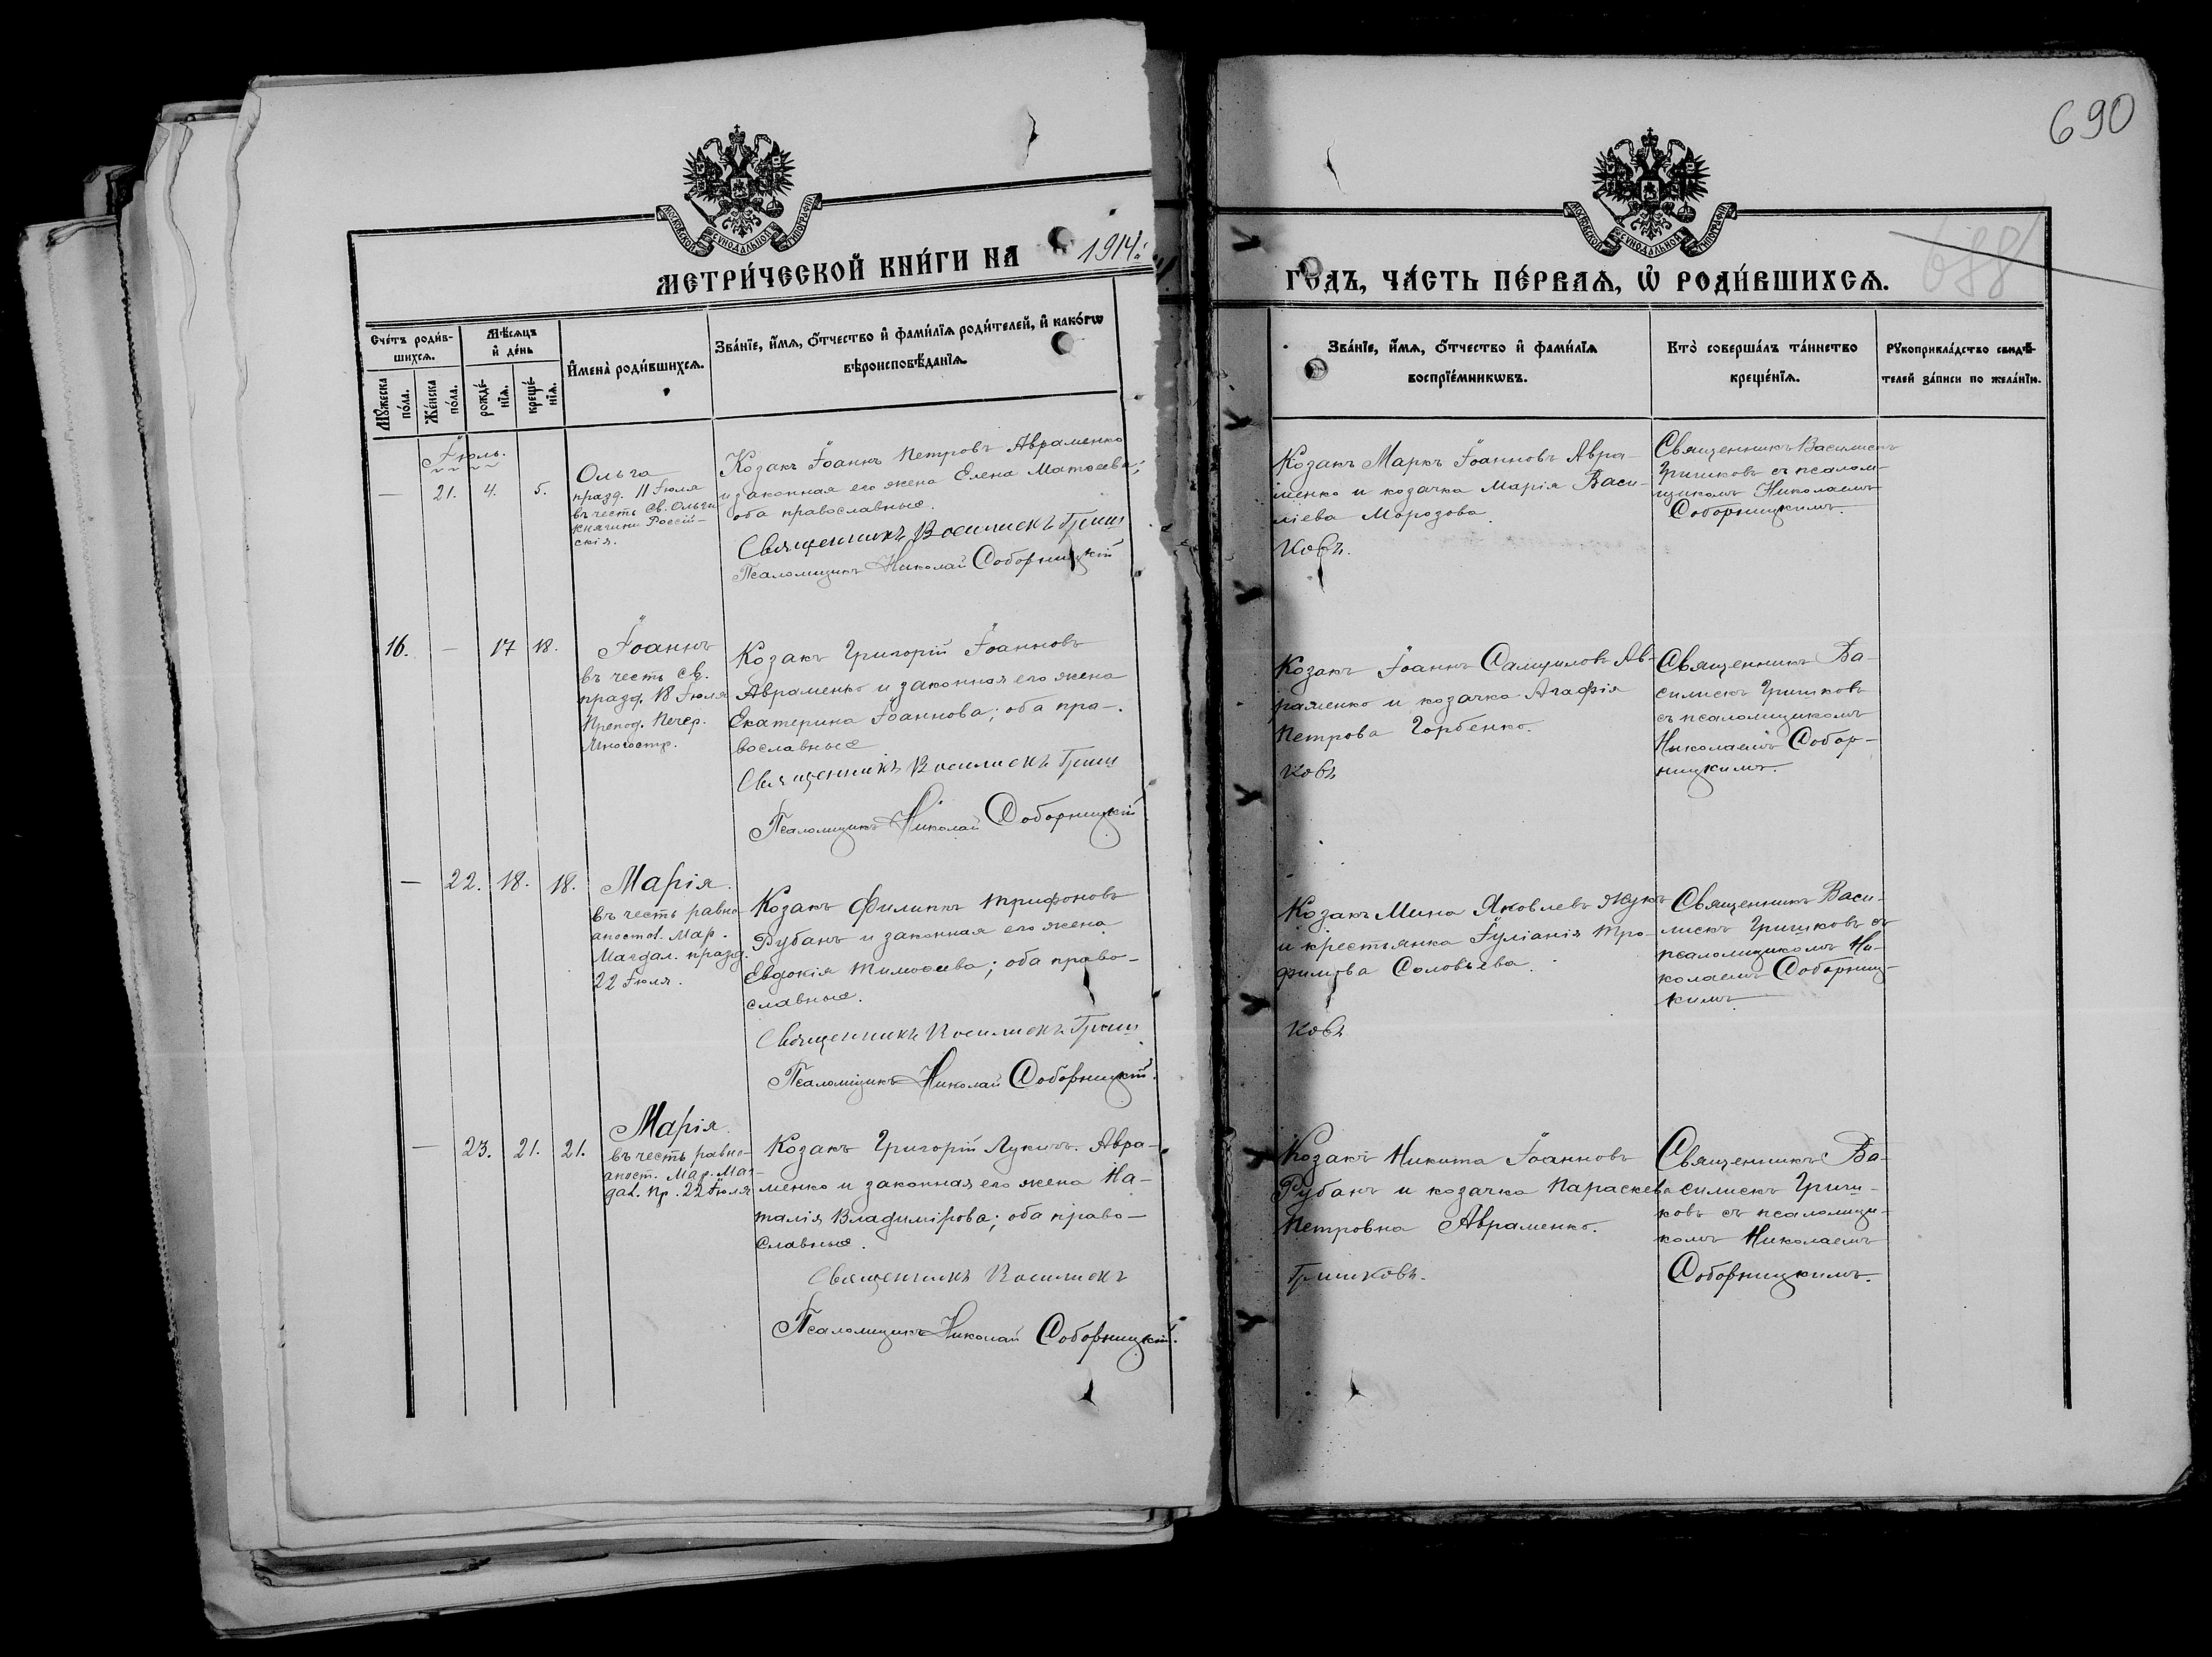 690
МОСКОВСКОЙ СѴНОДАЛЬНОЙ ТИПОГРАФІИ
МОСКОВСКОЙ СѴНОДАЛЬНОЙ ТИПОГРАФІИ
МЕТРИ́ЧЕСКОЙ КНИ́ГИ НА 1914
ГОДЪ, ЧА́СТЬ ПЕ́РВАѦ, Ѡ҆ РОДИ́ВШИХСѦ.
Сче́тъ роди́в-
шихсѧ.
Мꙋ́жеска
по́ла.
Же́нска
по́ла.
Мѣ́сѧцъ
и҆ де́нь
рожде́-
нїѧ.
креще́-
нїѧ.
И҆мена̀ роди́вшихсѧ.
Зва́нїе, и҆́мѧ, ѻ҆́тчество и҆ фами́лїѧ роди́телей, и҆ како́гѡ
вѣроисповѣ́данїѧ.
Зва́нїе, и҆́мѧ, ѻ҆́тчество и҆ фами́лїѧ
воспрїе́мникѡвъ.
Кто̀ соверша́лъ та́инство
креще́нїѧ.
Рꙋкоприкла́дство свидѣ́-
телей за́писи по жела́нїю.
Іюль.
— 21. 4. 5.
Ольга
празд. 11 Іюля
въ честь св. Ольги
княгини Россій-
скія.
Козакъ Іоаннъ Петровъ Авраменко
и законная его жена Елена Матѳеева;
оба православные.
Священникъ Василискъ Гриш
Псаломщикъ Николай Соборницкій
Козакъ Маркъ Іоанновъ Авра-
менко и козачка Марія Васи-
ліева Морозова.
ковъ.
Священникъ Василискъ
Гришковъ съ псалом-
щикомъ Николаемъ
Соборницкимъ.
16. — 17 18.
Іоаннъ
въ честь св.
празд. 18 Іюля
Препод. Печер.
Многостр.
Козакъ Григорій Іоанновъ
Авраменко и законная его жена
Екатерина Іоаннова; оба пра-
вославные
Священникъ Василискъ Гриш
Псаломщикъ Николай Соборницкій
Козакъ Іоаннъ Самуиловъ Ав-
раменко и козачка Агафія
Петрова Горбенко.
ковъ
Священникъ Ва-
силискъ Гришковъ
съ псаломщикомъ
Николаемъ Собор-
ницкимъ.
— 22. 18. 18.
Марія.
въ честь равно-
апостол. Мар.
Магдал. празд.
22 Іюля.
Козакъ Филиппъ Трифоновъ
Рубанъ и законная его жена
Евдокія Тимоѳеева; оба право-
славные.
Священникъ Василискъ Гриш
Псаломщикъ Николай Соборницкій.
Козакъ Мина Яковлевъ Жукъ
и крестьянка Іуліанія Тро-
фимова Соловьева.
ковъ
Священникъ Васи-
лискъ Гришковъ съ
псаломщикомъ Ни-
колаемъ Соборниц-
кимъ
— 23. 21. 21.
Марія.
въ честь равно-
апост. Мар. Маг-
дал. пр. 22 Іюля
Козакъ Григорій Лукичъ Авра-
менко и законная его жена На-
талія Владимірова; оба право-
славные.
Священникъ Василискъ
Псаломщикъ Николай Соборницкій.
Козакъ Никита Іоанновъ
Рубанъ и козачка Параскева
Петровна Авраменко.
Гришковъ.
Священникъ Ва-
силискъ Гриш-
ковъ съ псаломщи-
комъ Николаемъ
Соборницкимъ.